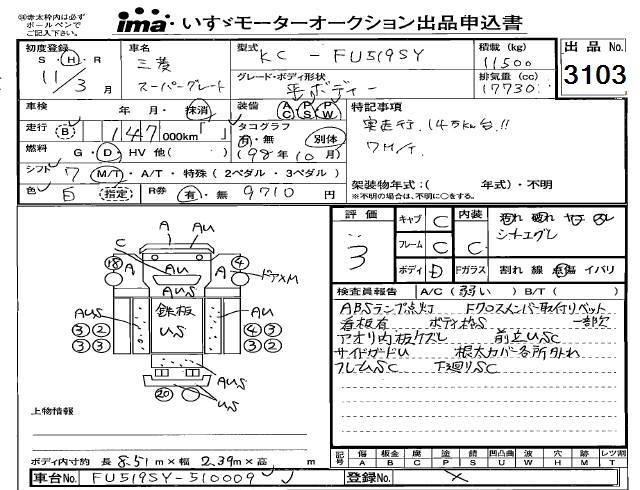 ※赤太枠内は必ず
ボールペンで
ご記入下さい。
ima いすゞモーターオークション出品申込書
初度登録 S・H・R 11/3月
車名 三菱 スーパーグレート
型式 KC-FU519SY
積載(kg) 11500
出品No. 3103
グレード・ボディ形状 平ボディー
排気量(cc) 17730
車検 年・月・抹消
装備 AC PS PW
特記事項
走行 (B) 147 000km「 」
タコグラフ 有・無 別体 (98年10月)
実走行14万km台!!
7M/T.
燃料 G・D・HV 他( )
シフト 7 M/T・A/T・特殊(2ペダル・3ペダル)
架装物年式:( 年式)・不明
※不明の場合は、不明に○をする。
色 白 指定 R券 有・無 9710円
評価 3
キャブ C 内装 C 汚れ 破れ ヤケ スレ
シートエグレ
フレーム C
ボディ D Fガラス 割れ 線 点傷 イバリ
検査員報告 A/C(弱い) B/T( )
ABSランプ点灯 Fクロスメンバー取付リベット
一部欠
看板有 ボディ柱S
アオリ内板ケズレ 前立USC
サイドガードU 根太カバー各所外れ
フレームSC 下廻りSC
A
A AU
C
AU
⑱ ④
ドアXM
AUS
鉄板
US
AUS
③② ④③
③③ ②②
AUS
⑳
US
上物情報
ボディ内寸約 長 8.51m×幅 2.39m×高 m
記号 傷 板金 腐 塗 錆 凹凸曲 波 穴 跡 レツ割
A B C P S U W H M T
車台No. FU519SY-510009
登録No. ×